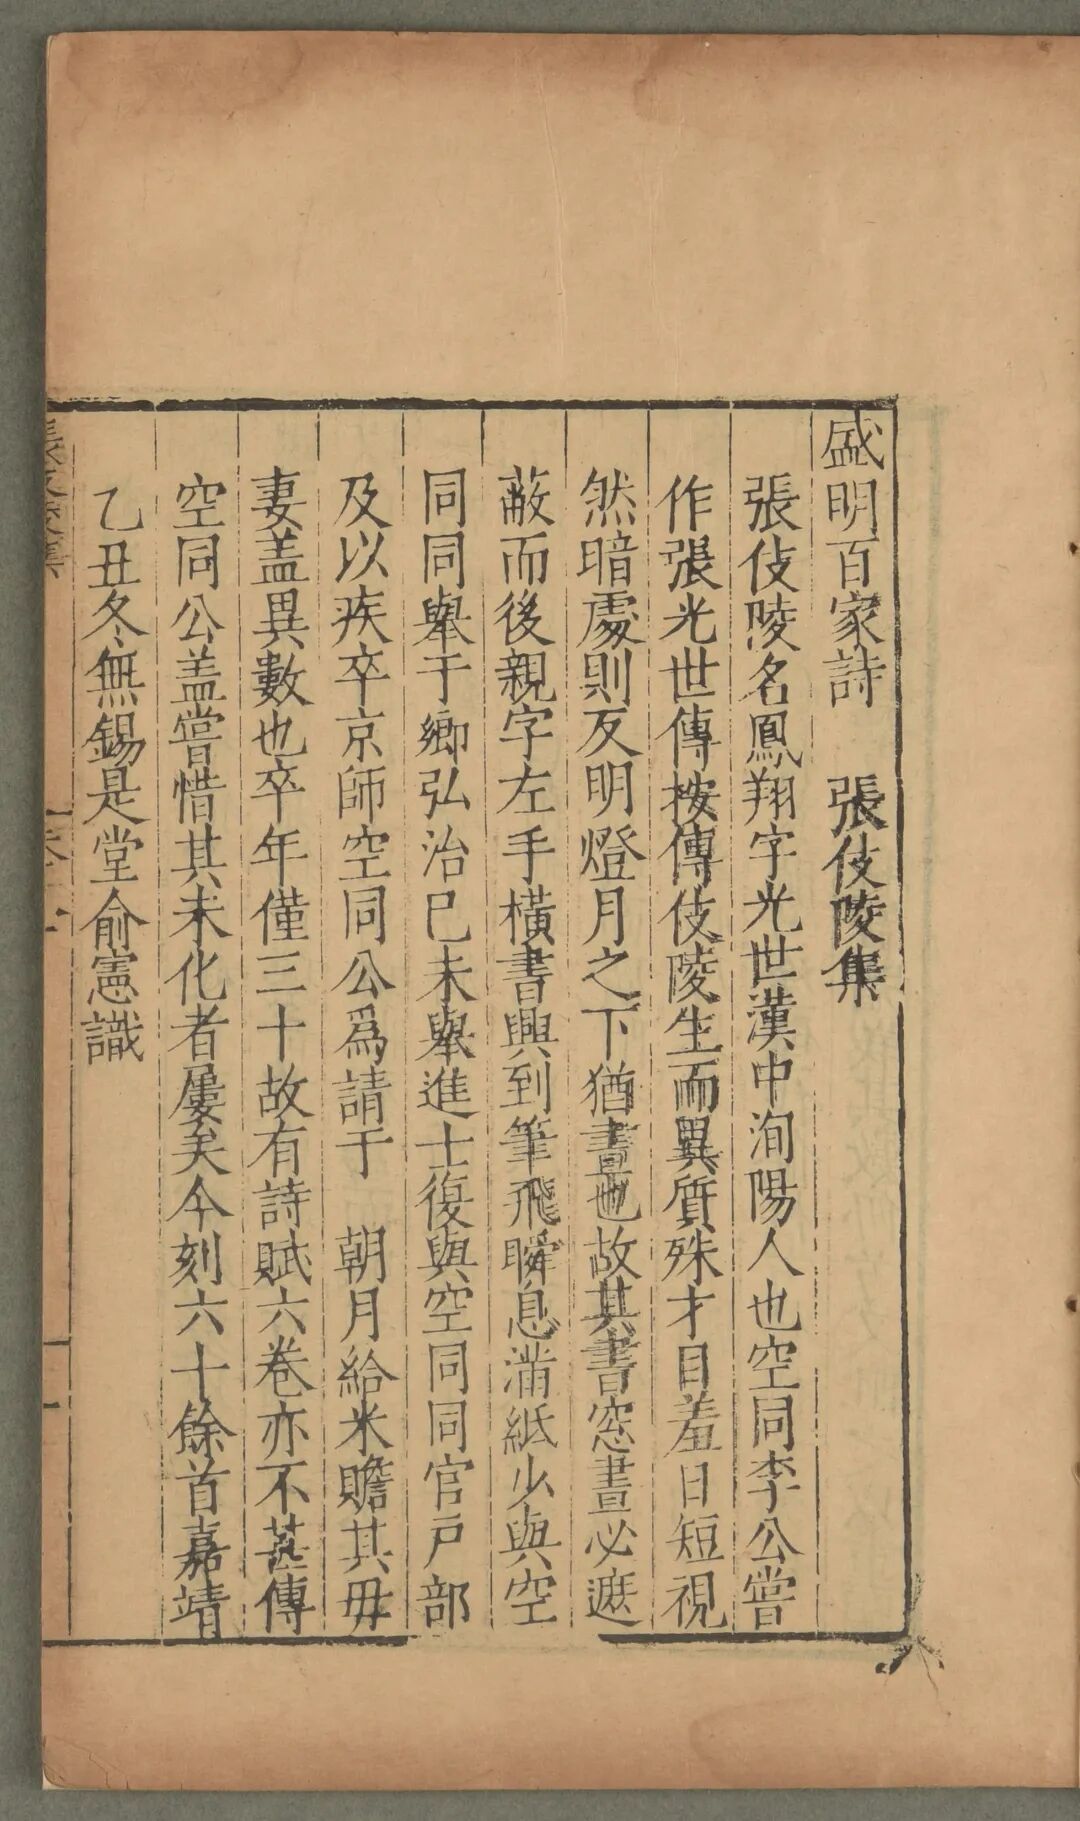 盛明百家詩　張伎陵集
張伎陵名鳳翔字光世漢中洵陽人也空同李公嘗
作張光世傳按傳伎陵生而異質殊才目羞日短視
然暗處則反明燈月之下猶晝也故其書窓晝必遮
蔽而後親字左手橫書興到筆飛瞬息滿紙少與空
同同舉于鄉弘治己未舉進士復與空同同官戶部
及以疾卒京師空同公爲請于　朝月給米贍其毋
妻盖異數也卒年僅三十故有詩賦六卷亦不甚傳
空同公盖嘗惜其未化者屢矣今刻六十餘首嘉靖
乙丑冬無錫是堂俞憲識